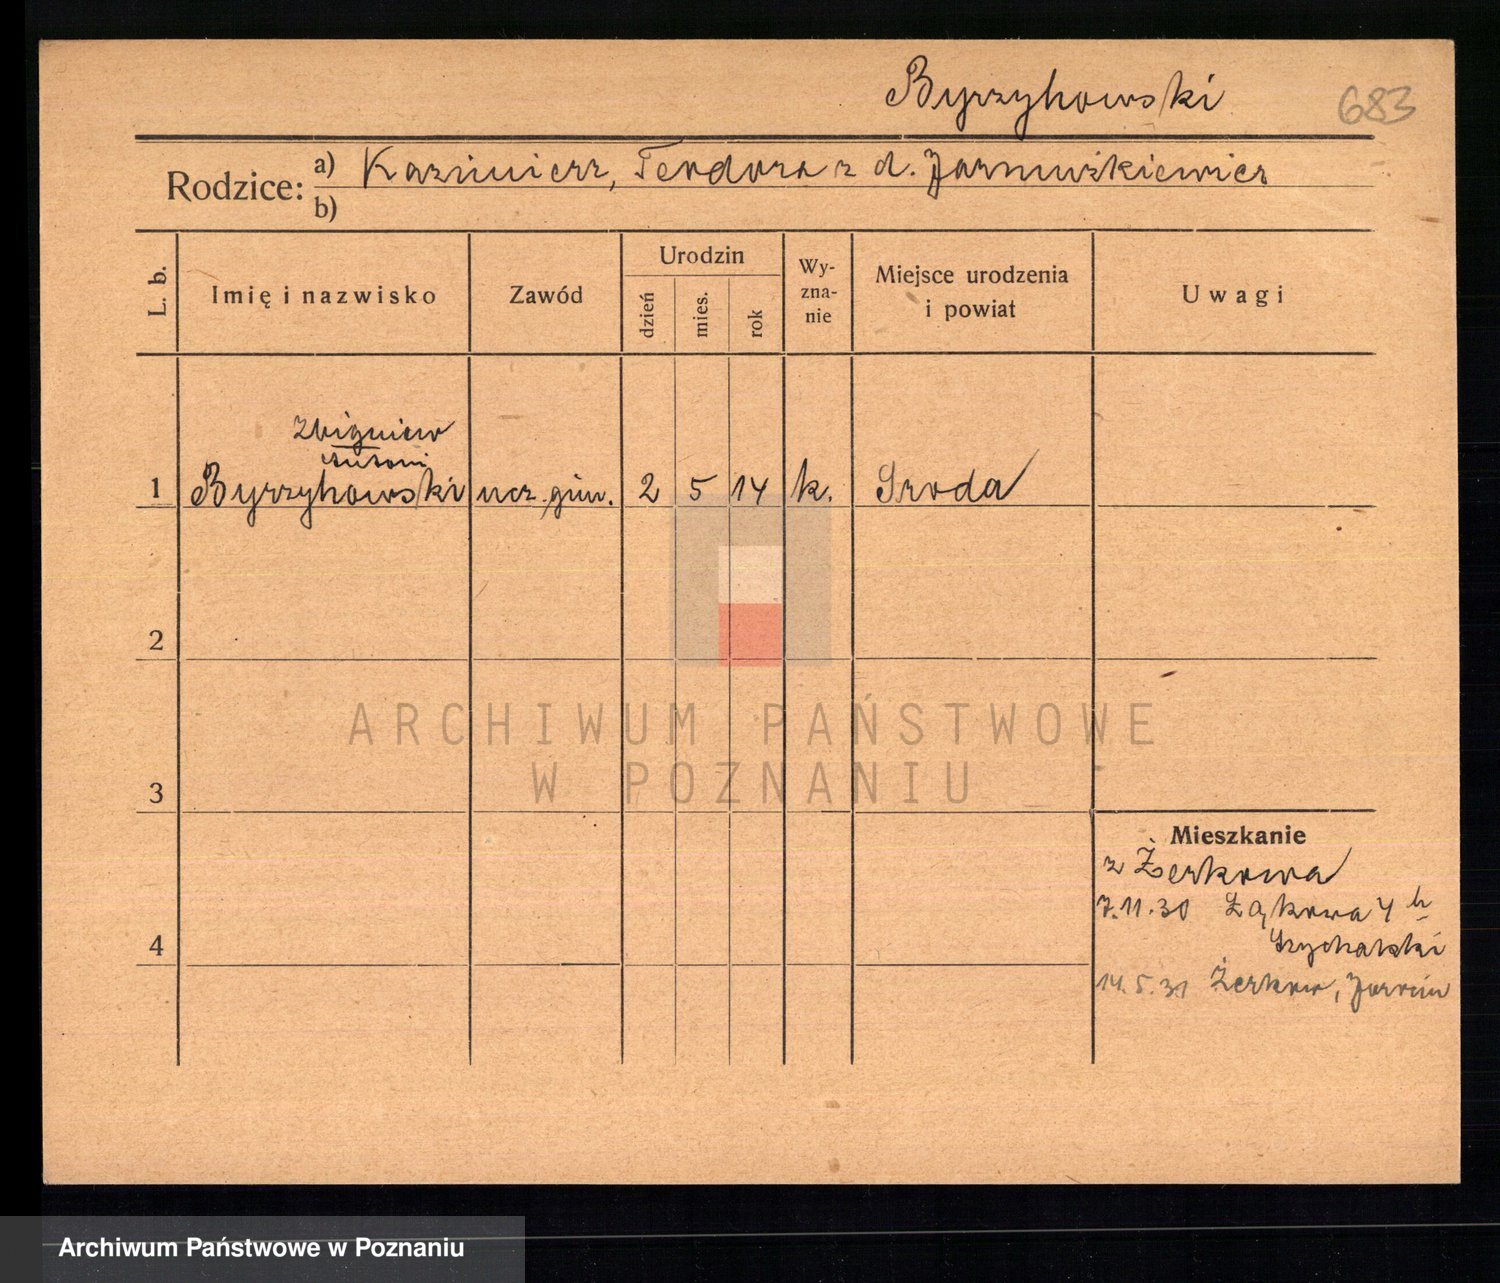 Byrzykowski 683
Rodzice: a) Kazimierz, Teodora z d. Jarnuszkiewicz
b)
L. b. Imię i nazwisko Zawód Urodzin dzień mies. rok Wy-zna-nie Miejsce urodzenia i powiat Uwagi
Zbigniew
Antoni
1 Byrzykowski ucz. gim. 2 5 14 k. Sroda
2
ARCHIWUM PAŃSTWOWE
W POZNANIU
3
Mieszkanie
z Żerkowa
7.11.30 Łąkowa 4
4
14.5.31 Żerków, Jarocin
Archiwum Państwowe w Poznaniu